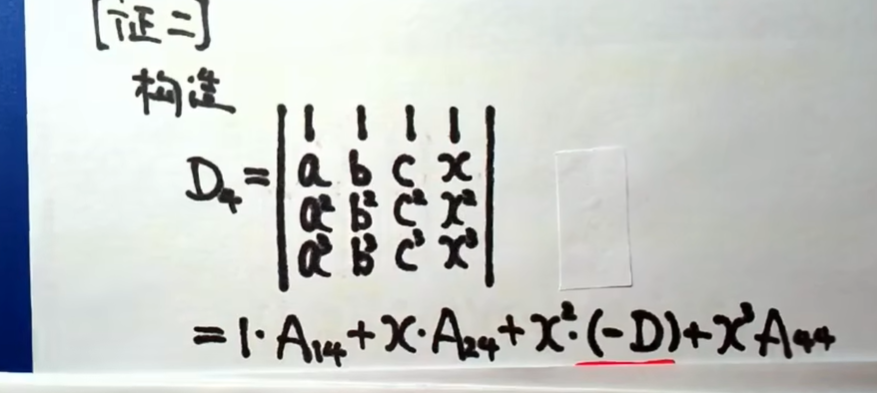 [证二]
构造
D₄=| 1 1 1 1 |
| a b c x |
| a² b² c² x² |
| a³ b³ c³ x³ |
=1·A₁₄+x·A₂₄+x²·(-D)+x³A₄₄